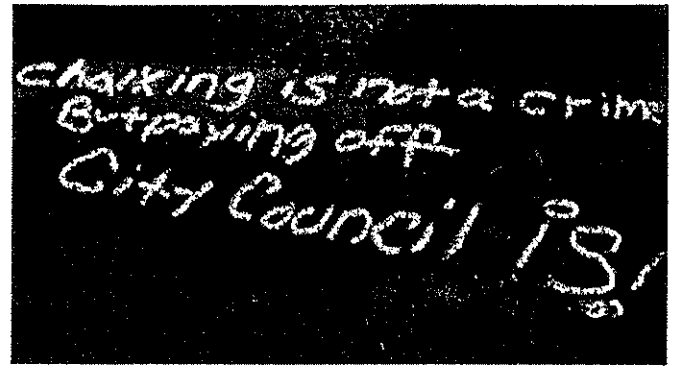 chalking is not a crime
But paying off
City Council is!